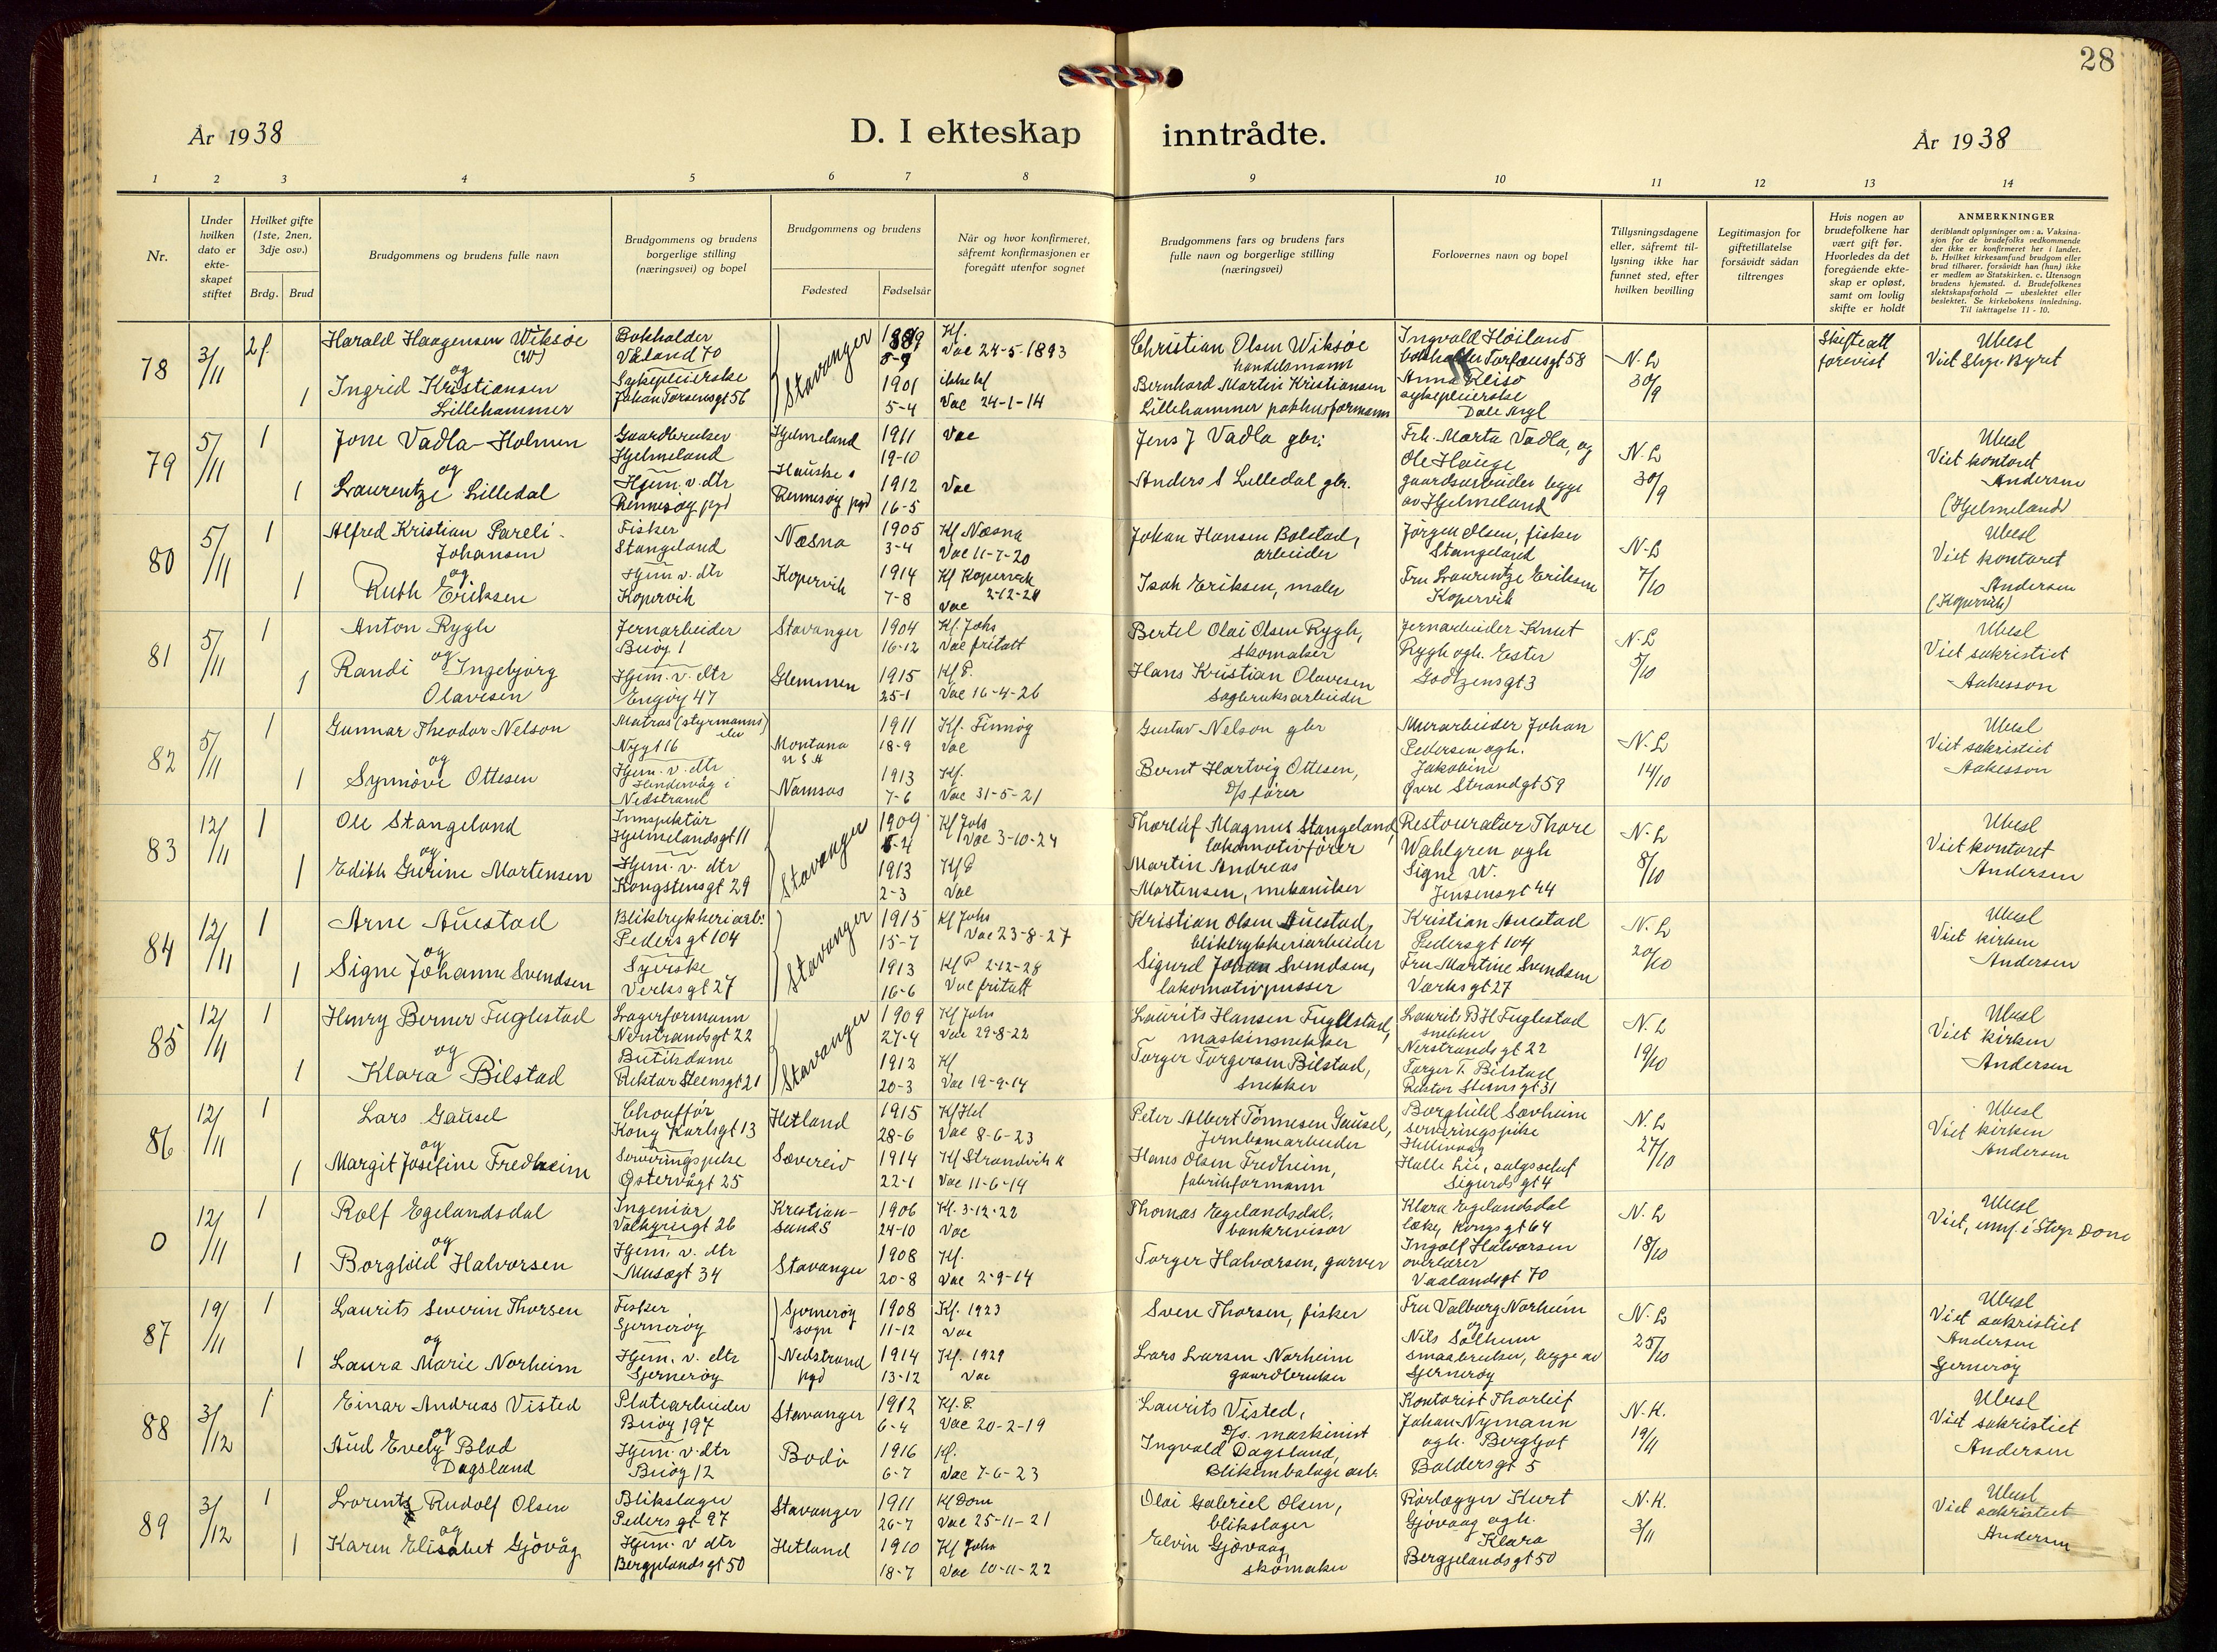 28
År 1938
D. I ekteskap inntrådte.
År 1938
1 2 3 4 5 6 7 8 9 10 11 12 13 14
Nr.
Under hvilken dato er ekte-skapet stiftet
Hvilket gifte (1ste, 2nen, 3dje osv.)
Brdg. Brud
Brudgommens og brudens fulle navn
Brudgommens og brudens borgerlige stilling (næringsvei) og bopel
Brudgommens og brudens
Fødested Fødselsår
Når og hvor konfirmeret, såfremt konfirmasjonen er foregått utenfor sognet
Brudgommens fars og brudens fars fulle navn og borgerlige stilling (næringsvei)
Forlovernes navn og bopel
Tillysningsdagene eller, såfremt til-lysning ikke har funnet sted, efter hvilken bevilling
Legitimasjon for giftetillatelse forsåvidt sådan tiltrenges
Hvis nogen av brudefolkene har vært gift før. Hvorledes da det foregående ekte-skap er opløst, samt om lovlig skifte er holdt
ANMERKNINGER
deriblandt oplysninger om: a. Vaksina-sjon for de brudefolks vedkommende der ikke er konfirmeret her i landet. b. Hvilket kirkesamfund brudgom eller brud tilhører, forsåvidt han (hun) ikke er medlem av Statskirken. c. Utensogn brudens hjemsted. d. Brudefolkenes slektskapsforhold — ubeslektet eller beslektet. Se kirkebokens innledning. Til iakttagelse 11 - 10.
78 3/11 2f. Harald Haagensen Wiksøe (W) Bokholder Våland 70 Stavanger Kf. Vac 24-5-1893 Christian Olsen Wiksøe handelsmann Ingvald Höiland Torfæusgt 58 N.L 30/9 Skifteatt forevist Ubesl Viet Stvgr. Byret
og
1 Ingrid Kristiansen Lillehammer Sykepleierske Johan Torsensgt 56 1901 5-4 ikke kf Vac 24-1-14 Bernhard Martin Kristiansen Lillehammer pakkhusformann Anna Reiso sykepleierske
79 5/11 1 Jone Vadla-Holmen Gaardbruker Hjelmeland Hjelmeland 1911 19-10 Vac Jens J Vadla gbr. Frk. Marta Vadla, og Ole Hauge gaardsarbeider begge av Hjelmeland N.L 30/9 Ubesl Viet kontoret Andersen (Hjelmeland)
og
1 Laurentze Lilledal Hjem.v.dtr Rennesøy pgd Hauske s Rennesøy pgd 1912 16-5 Vac Anders S Lilledal gbr.
80 5/11 1 Alfred Kristian Pareli-Johansen Fisker Stangeland Næsna 1905 3-4 Kf Næsna Vac 11-7-20 Johan Hansen Bolstad, arbeider Jørgen Olsen, fisker Stangeland N.L 7/10 Ubesl Viet kontoret Andersen (Kopervik)
og
1 Ruth Eriksen Hjem v. dtr Kopervik Kopervik 1914 7-8 Kf Kopervik Vac Isak Eriksen, maler Fru Laurentze Eriksen Kopervik
81 5/11 1 Anton Rygh Jernarbeider Buøy 1 Stavanger 1904 16-12 Kf. Johs Vac fritatt Bertel Olai Olsen Rygh, skomaker Jernarbeider Knut Rygh ogh. Ester Godtzensgt 3 N.L 5/10 Ubesl Viet sakristiet Aakesson
og
1 Randi Ingebjørg Olavesen Hjem.v.dtr Engøy 47 Glemmen 1915 25-1 Kf P. Vac 16-4-26 Hans Kristian Olavesen Sagbruksarbeider
82 5/11 1 Gunnar Theodor Nelson Matros (styrmanns) elev Nygt 16 Montana U S A 1911 18-9 Kf. Finnøy Vac Gustav Nelson gbr Murarbeider Johan Pedersen ogh. Jakobine Øvre Strandgt 59 N.L 14/10 Ubesl Viet sakristiet Aakesson
og
1 Synnøve Ottesen Hjem.v.dtr Hindervåg i Nedstrand Namsos 1913 7-6 Kf. Vac 31-5-21 Bernt Hartvig Ottesen, D/s fører
83 12/11 1 Ole Stangeland Innspektør Hjelmelandsgt 11 Stavanger 1909 Kf Johs Vac 3-10-24 Thorleif Magnus Stangeland, lokomotivfører Restauratør Thore Wahlgren ogh Signe W. Jensensgt 44 N.L 8/10 Ubesl Viet kontoret Andersen
og
1 Edith Gurine Martensen Hjem.v.dtr Kongstensgt 29 1913 2-3 Kf P Vac Martin Andreas Martensen, mekaniker
84 12/11 1 Arne Auestad Bliktrykkeriarb: Pedersgt 104 Stavanger 1915 15-7 Kf Johs Vac 23-8-27 Kristian Olsen Auestad, bliktrykkeriarbeider Kristian Auestad Pedersgt 104 N.L 20/10 Ubesl Viet kirken Andersen
og
1 Signe Johanne Svendsen Syerske Verksgt 27 1913 16-6 Kf P 2-12-28 Vac fritatt Sigurd Johan Svendsen, lokomotivpusser Fru Martine Svendsen Værksgt 27
85 12/11 1 Henry Berner Fuglestad Lagerformann Nerstrandsgt 22 Stavanger 1909 27-4 Kf Johs Vac 29-8-22 Laurits Hansen Fuglestad, maskinsnekker Laurits B H Fuglestad snekker Nerstrandsgt 22 N.L 19/10 Ubesl Viet kirken Andersen
og
1 Klara Bilstad Butikdame Rektor Steensgt 21 1912 20-3 Kf Vac 19-9-14 Torger Torgersen Bilstad, snekker Torger T. Bilstad Rektor Steensgt 31
86 12/11 1 Lars Gausel Chouffør Kong Karlsgt 13 Hetland 1915 28-6 Kf Het Vac 8-6-23 Peter Albert Tønnesen Gausel, Jernbanearbeider Borghild Sævheim serveringspike Hillevåg N.L 27/10 Ubesl Viet kirken Andersen
og
1 Margit Josefine Fredheim Serveringspike Østervågt 25 Sævereid 1914 22-1 Kf Strandvik K Vac 11-6-14 Hans Olsen Fredheim, fabrikformann Halle Lie, salgssjef Sigurdsgt 4
0 12/11 1 Rolf Egelandsdal Ingeniør Valkyriegt 26 Kristian-sand S 1906 24-10 Kf. 3-12-22 Vac Thomas Egelandsdal, bankrevisor Klara Egelandsdal læke, Kongsgt 64 N.L 18/10 Ubesl Viet, innf. i Stvgr Dom
og
1 Borghild Halvorsen Hjem. v. dtr Musøgt 34 Stavanger 1908 20-8 Kf. Vac 2-9-14 Torger Halvorsen, garver Ingolf Halvorsen overlærer Vaalandsgt 70
87 19/11 1 Laurits Severin Thorsen Fisker Sjernerøy Sjernerøy sogn 1908 11-12 Kf. 1923 Vac Sven Thorsen, fisker Fru Valborg Norheim og Nils Solheim smaabruker, begge av Sjernerøy N.L 25/10 Ubesl Viet sakristiet Andersen Sjernerøy
og
1 Laura Marie Norheim Hjem. v. dtr Sjernerøy Nedstrand pgd 1914 13-12 Kf. 1929 Vac Lars Larsen Norheim gaardbruker
88 3/12 1 Einar Andreas Visted Platearbeider Buøy 197 Stavanger 1912 6-4 Kf. P. Vac 20-2-19 Laurits Visted, D/s. maskinist Kontorist Thorleif Johan Nymann ogh. Bergljot Baldersgt 5 N.K. 19/11 Ubesl Viet sakristiet Andersen
og
Aud Evely Blad Dagsland Hjem.v.dtr Buøy 12 Bodø 1916 6-7 Kf. Vac 7-6-23 Ingvald Dagsland, Blikembalage arb.
89 3/12 1 Lorentz Rudolf Olsen Blikslager Pedersgt 97 Stavanger 1911 26-7 Kf Dom Vac 25-11-21 Olai Gabriel Olsen, blikslager Rørlegger Kurt Gjøvaag ogh. Klara Bergjelandsgt 50 N.K. 3/11 Ubesl Viet sakristiet Andersen
og
1 Karen Elisabet Gjøvåg Hjem. v dtr Bergjelandsgt 50 Hetland 1910 18-7 Kf Johs Vac 10-11-22 Elvin Gjøvaag, skomaker